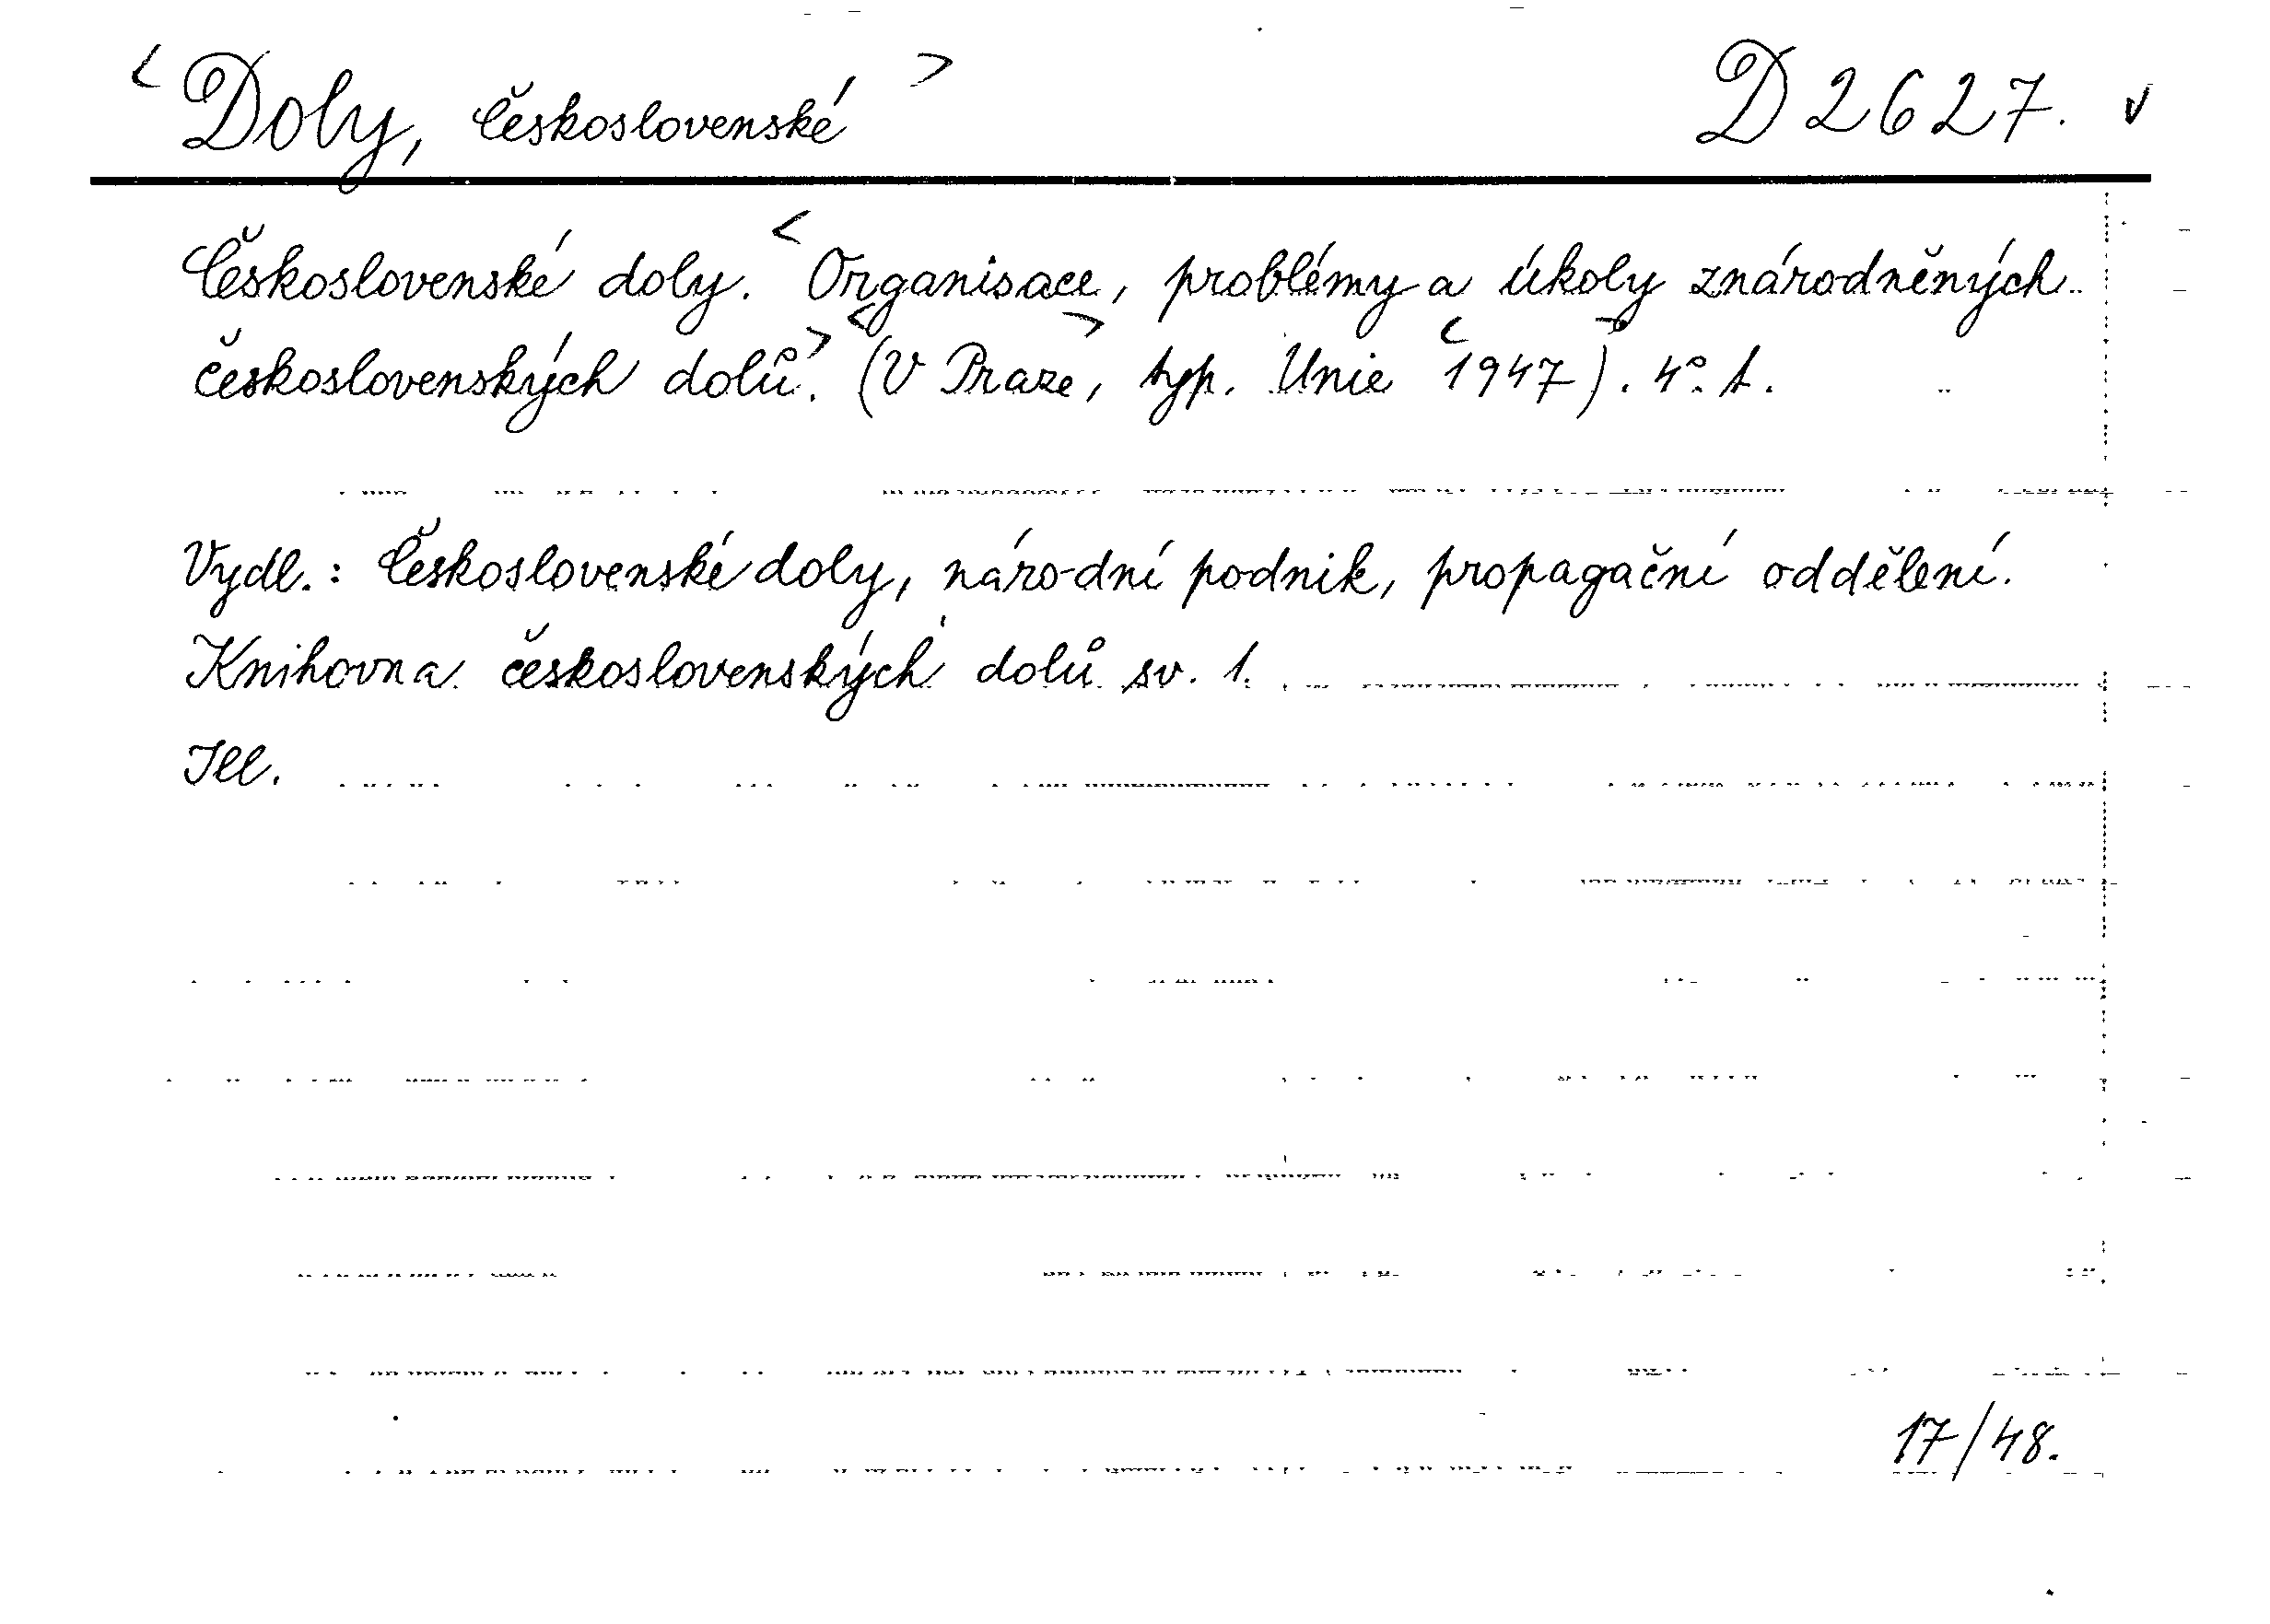 <Doly, Československé> D 2627. √
Československé doly. <Organisace, problémy a úkoly znárodněných
československých dolů.> (<V Praze>, typ. Unie <1947>). 4°. t.
Vydl.: Československé doly, národní podnik, propagační oddělení.
Knihovna československých dolů sv. 1.
Ill.
17/48.